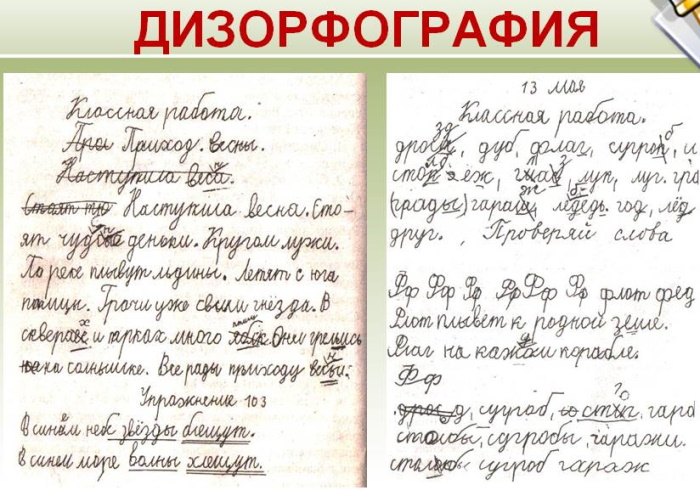 ДИЗОРФОГРАФИЯ
Классная работа.
Про Приход весны.
Наступила веса.
Стоят тю Наступила весна. Сто-
ят чудные деньки. Кругом лужи.
По реке плывут льдины. Летят с юга
птицы. Грачи уже свили гнёзда. В
скверах и парках много Они грелись
на солнышке. Все рады приходу весны.
Упражнение 103
В синем небе звёзды блещут.
В синем море волны хлещут.
13 мая
Классная работа.
дрозд, дуб, флаг, сугроб, и
столб ёж, глаз лук, луг. гра
(грады) гараж, лебедь год, лёд
друг. , Проверяй слова
Фф Фф Фф Фф Фф Фф флот фед
Флот плывет к родной земле.
Флаг на каждом корабле.
Ф ф
дрозд, сугроб, стог, гара
столбы, сугробы, гаражи.
сугроб гараж